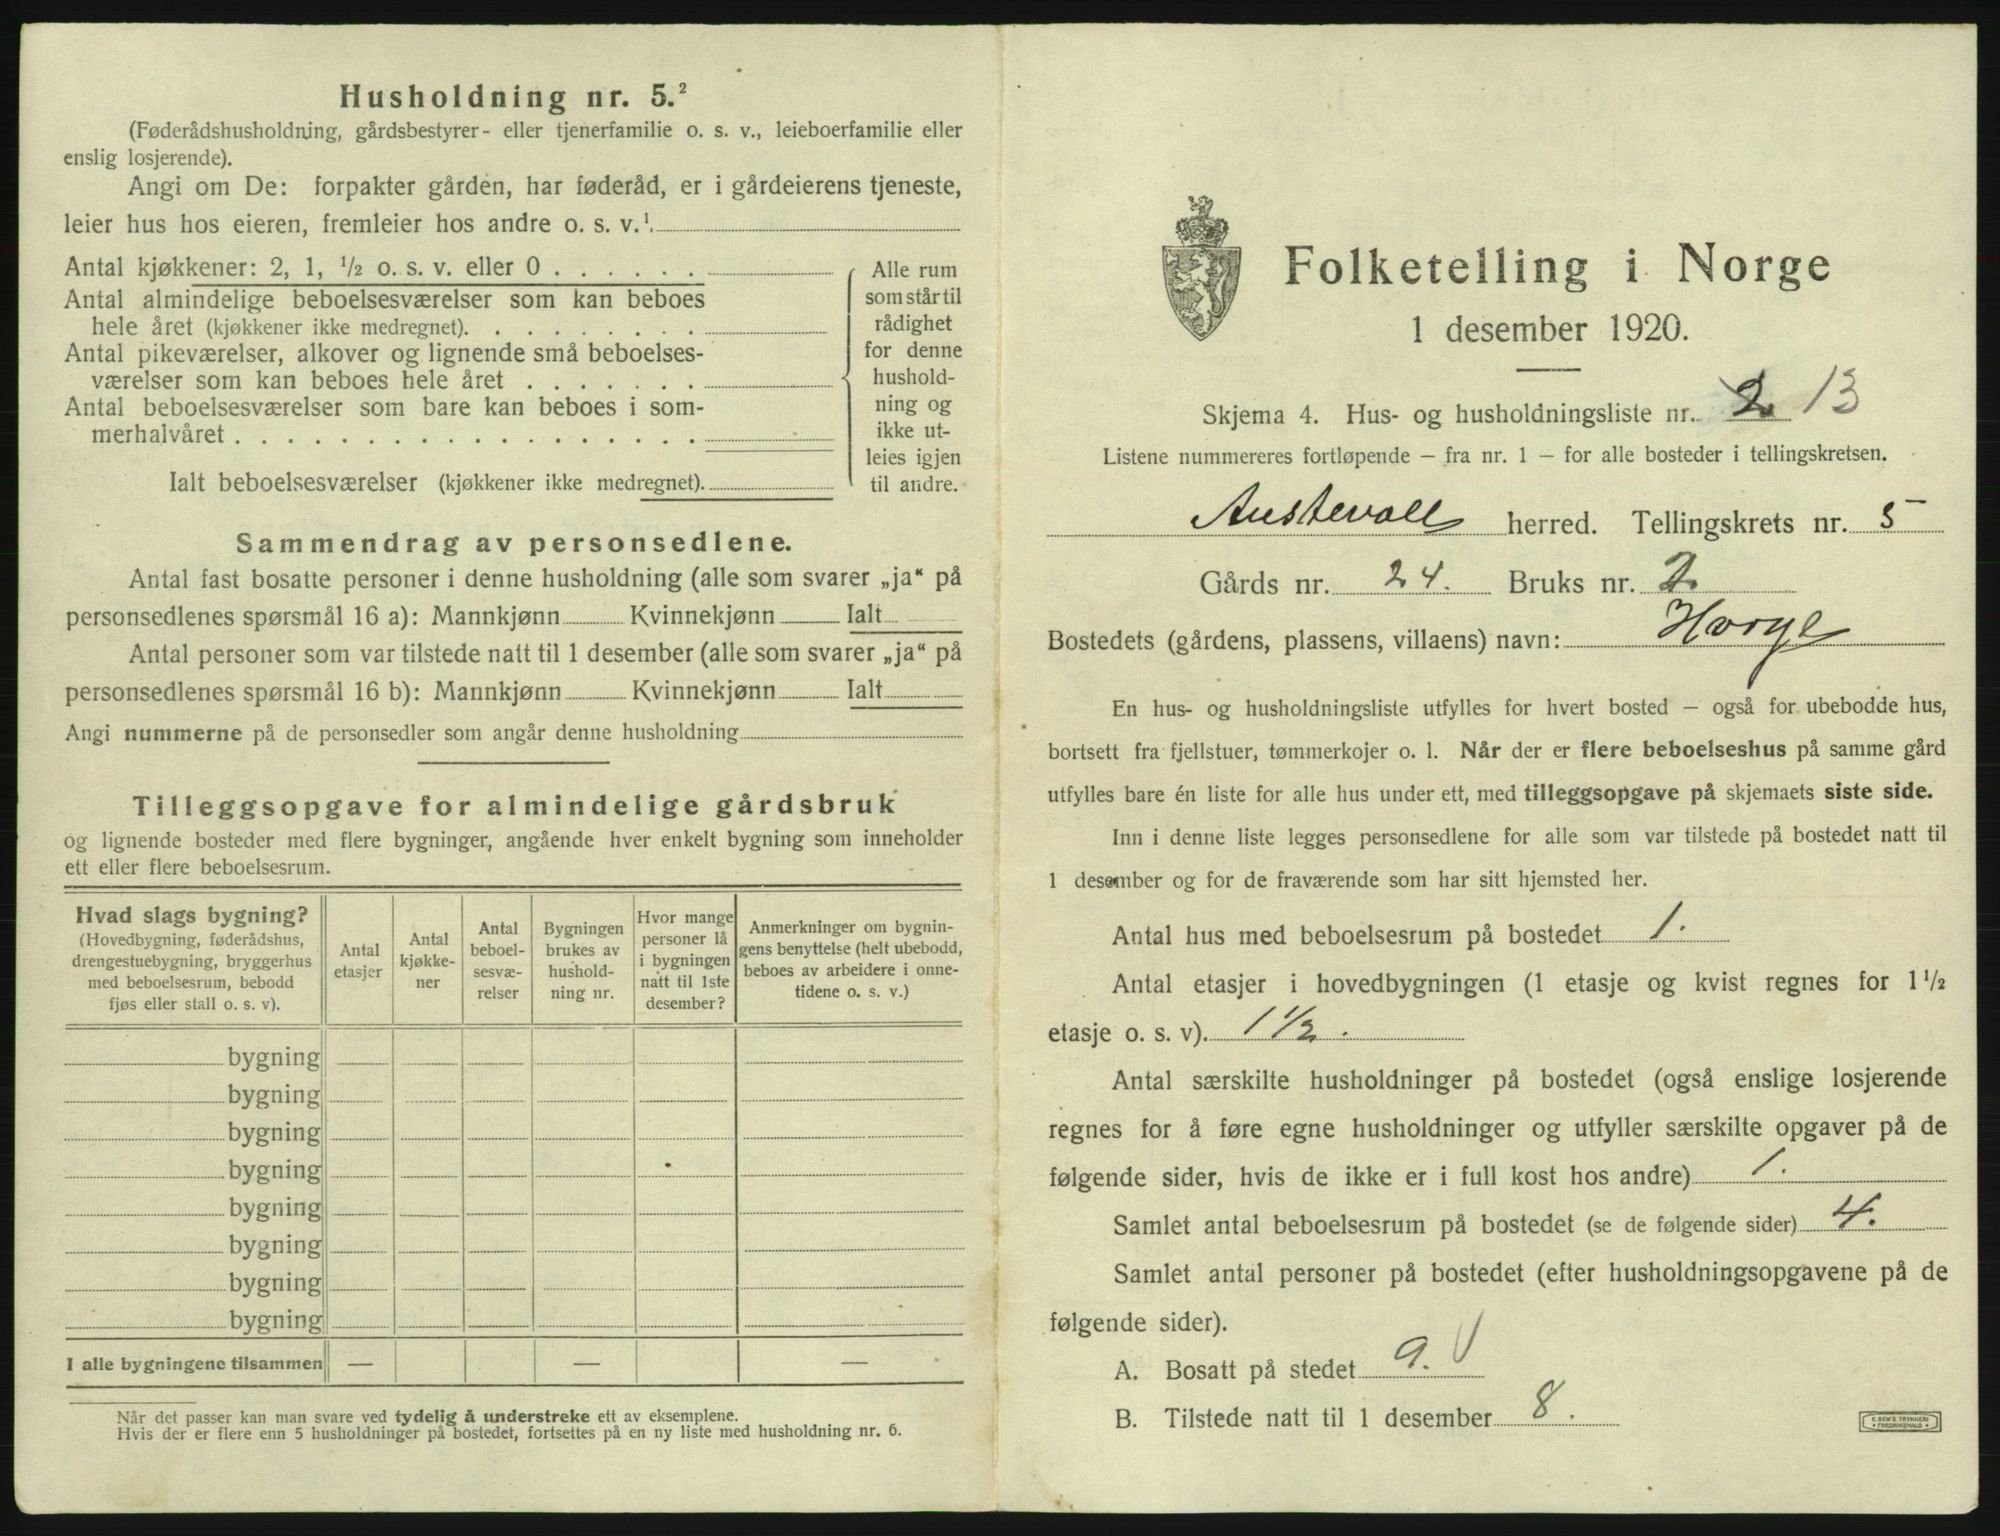 Husholdning nr. 5.²
(Føderådshusholdning, gårdsbestyrer- eller tjenerfamilie o. s. v., leieboerfamilie eller
enslig losjerende).
Angi om De: forpakter gården, har føderåd, er i gårdeierens tjeneste,
leier hus hos eieren, fremleier hos andre o. s. v.¹.
Antal kjøkkener: 2, 1, ½ o. s. v. eller 0 . . . . . .
Antal almindelige beboelsesværelser som kan beboes
hele året (kjøkkener ikke medregnet). . . . . . . . .
Antal pikeværelser, alkover og lignende små beboelses-
værelser som kan beboes hele året . . . . . . .
Antal beboelsesværelser som bare kan beboes i som-
merhalvåret . . . . . . . . . . . . . . . . . .
Ialt beboelsesværelser (kjøkkener ikke medregnet).
Alle rum
som står til
rådighet
for denne
hushold-
ning og
ikke ut-
leies igjen
til andre.
Sammendrag av personsedlene.
Antal fast bosatte personer i denne husholdning (alle som svarer „ja“ på
personsedlenes spørsmål 16 a): Mannkjønn Kvinnekjønn Ialt
Antal personer som var tilstede natt til 1 desember (alle som svarer „ja“ på
personsedlenes spørsmål 16 b): Mannkjønn Kvinnekjønn Ialt
Angi nummerne på de personsedler som angår denne husholdning
Tilleggsopgave for almindelige gårdsbruk
og lignende bosteder med flere bygninger, angående hver enkelt bygning som inneholder
ett eller flere beboelsesrum.
Hvad slags bygning?
(Hovedbygning, føderådshus,
drengestuebygning, bryggerhus
med beboelsesrum, bebodd
fjøs eller stall o. s. v).
Antal
etasjer
Antal
kjøkke-
ner
Antal
beboel-
sesvæ-
relser
Bygningen
brukes av
hushold-
ning nr.
Hvor mange
personer lå
i bygningen
natt til 1ste
desember?
Anmerkninger om bygnin-
gens benyttelse (helt ubebodd,
beboes av arbeidere i onne-
tidene o. s. v.)
bygning
bygning
bygning
bygning
bygning
bygning
bygning
bygning
I alle bygningene tilsammen — — —
Når det passer kan man svare ved tydelig å understreke ett av eksemplene.
Hvis der er flere enn 5 husholdninger på bostedet, fortsettes på en ny liste med husholdning nr. 6.
Folketelling i Norge
1 desember 1920.
Skjema 4. Hus- og husholdningsliste nr. 2 13
Listene nummereres fortløpende — fra nr. 1 — for alle bosteder i tellingskretsen.
Austevoll herred. Tellingskrets nr. 5
Gårds nr. 24. Bruks nr. 2
Bostedets (gårdens, plassens, villaens) navn: Horge
En hus- og husholdningsliste utfylles for hvert bosted — også for ubebodde hus,
bortsett fra fjellstuer, tømmerkojer o. l. Når der er flere beboelseshus på samme gård
utfylles bare én liste for alle hus under ett, med tilleggsopgave på skjemaets siste side.
Inn i denne liste legges personsedlene for alle som var tilstede på bostedet natt til
1 desember og for de fraværende som har sitt hjemsted her.
Antal hus med beboelsesrum på bostedet 1.
Antal etasjer i hovedbygningen (1 etasje og kvist regnes for 1½
etasje o. s. v). 1½.
Antal særskilte husholdninger på bostedet (også enslige losjerende
regnes for å føre egne husholdninger og utfyller særskilte opgaver på de
følgende sider, hvis de ikke er i full kost hos andre) 1.
Samlet antal beboelsesrum på bostedet (se de følgende sider) 4.
Samlet antal personer på bostedet (efter husholdningsopgavene på de
følgende sider).
A. Bosatt på stedet 9.
B. Tilstede natt til 1 desember 8.
E. SEM'S TRYKKERI
FREDRIKSHALD